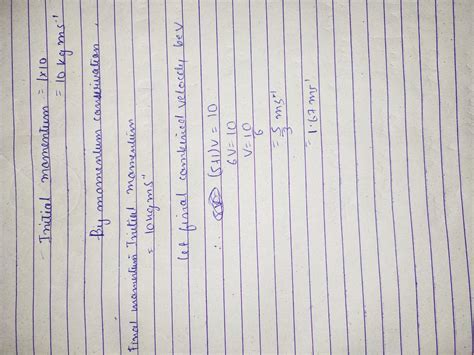 Initial momentum = 1x10
= 10 kg ms⁻¹
By momentum conservation
Final momentum Initial momentum
= 10 kg ms⁻¹
let final combined velocity be v
∴ (5+1)v = 10
6v = 10
v = 10/6
= 5/3 ms⁻¹
= 1.67 ms⁻¹